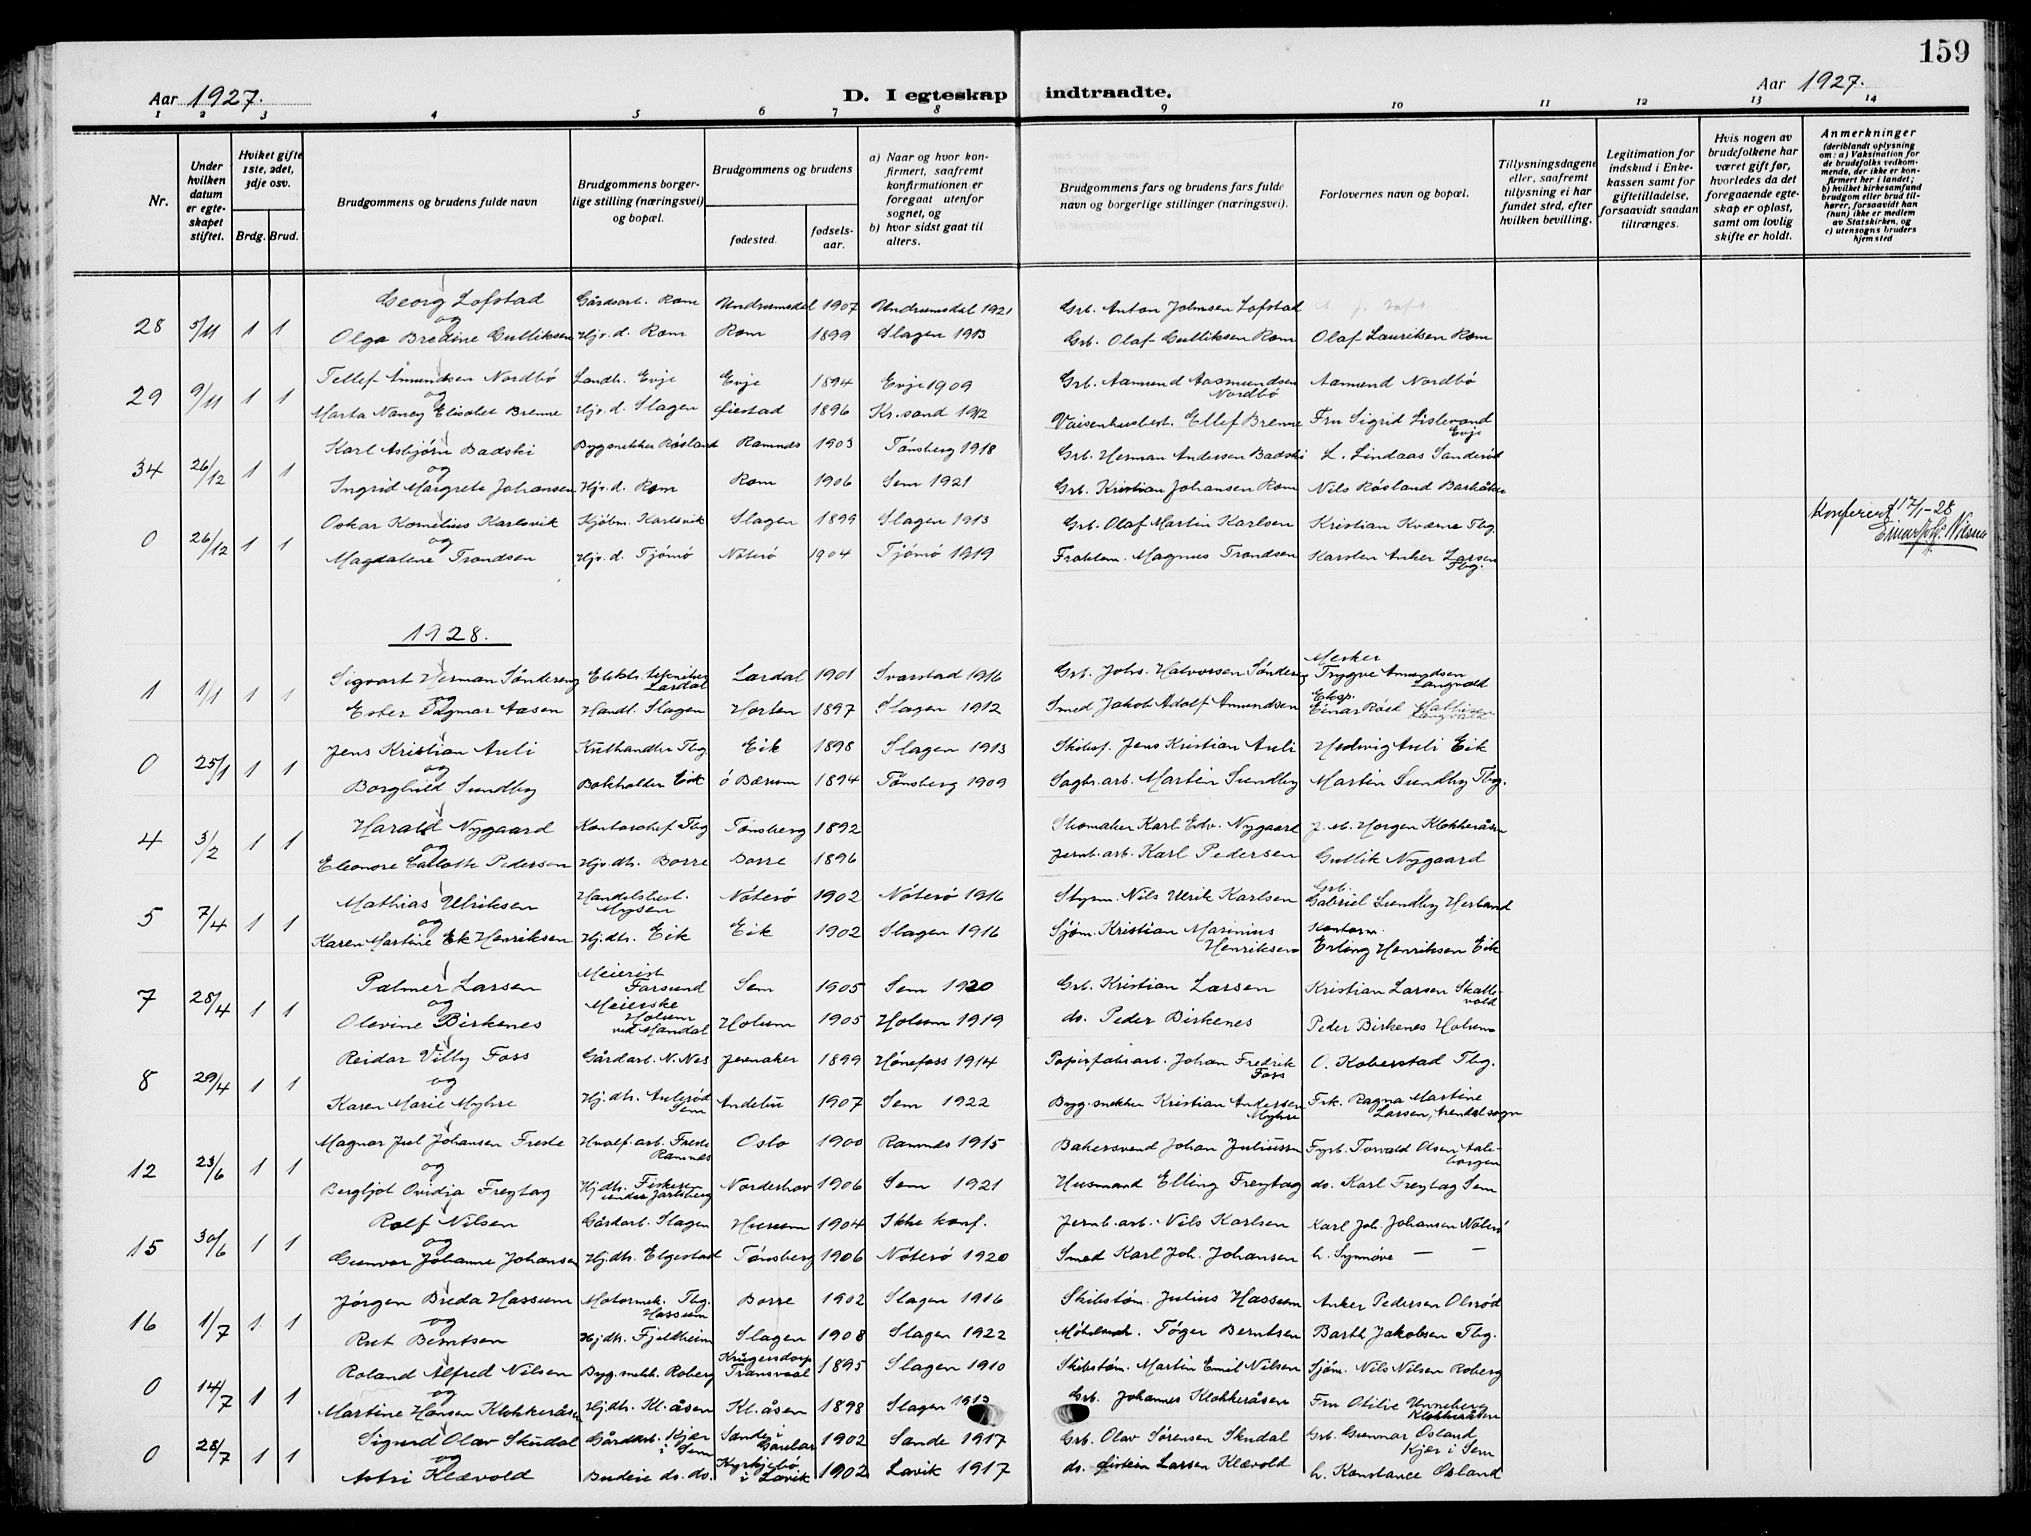 159
Aar 1927.
D. I egteskap indtraadte.
Aar 1927.
1 2 3 4 5 6 7 8 9 10 11 12 13 14
Nr.
Under hvilken datum er egteskapet stiftet.
Hviket gifte 1ste, 2det, 3dje osv.
Brdg. Brud.
Brudgommens og brudens fulde navn
Brudgommens borgerlige stilling (næringsvei) og bopæl.
Brudgommens og brudens
fødested.
fødselsaar.
a) Naar og hvor konfirmert, saafremt konfirmationen er foregaat utenfor sognet, og
b) hvor sidst gaat til alters.
Brudgommens fars og brudens fars fulde navn og borgerlige stillinger (næringsvei).
Forlovernes navn og bopæl.
Tillysningsdagene eller, saafremt tillysning ei har fundet sted, efter hvilken bevilling.
Legitimation for indskud i Enkekassen samt for giftetilladelse, forsaavidt saadan tiltrænges.
Hvis nogen av brudefolkene har været gift før, hvorledes da det foregaaende egteskap er opløst, samt om lovlig skifte er holdt.
Anmerkninger
(deriblandt oplysning om: a) Vaksination for de brudefolks vedkommende, der ikke er konfirmert her i landet;
b) hvilket kirkesamfund brudgom eller brud tilhører, forsaavidt han (hun) ikke er medlem av Statskirken, og
c) utensogns bruders hjemsted
Georg Lofstad Gårdsarb. Rom Undrumsdal 1907 Undrumsdal 1921 Grb. Anton Johnsen Lofstad
28 5/11 1 1 og
Olga Bredine Gulliksen Hjv. d. Rom Rom 1899 Slagen 1913 Grb. Olaf Gulliksen Rom Olaf Lauriksen Rom
Tellef Åmundsen Nordbö Landb. Evje Evje 1894 Evje 1909 Grb. Aamund Aasmundsen Nordbö Aamund Nordbö
29 9/11 1 1 og
Marta Nancy Elisabet Brenne Hjv. d. Slagen Øiestad 1896 Kr.sand 1912 Vaisenhusbest. Ellef Brenne Fru Sigrid Lislevand Evje
Karl Asbjörn Badski Bygsnekker Røsland Ramnes 1903 Tønsberg 1918 Grb. Herman Andersen Badski L. Lindaas Sanderöd
34 26/12 1 1 og
Ingrid Margrete Johansen Hjv. d. Rom Rom 1906 Sem 1921 Grb. Kristian Johansen Rom Nils Røsland Barkåker
Oskar Kornelius Karlsvik Kjöbm. Karlsvik Slagen 1899 Slagen 1913 Grb. Olaf Martin Karlsen Kristian Kværne Tbg Konferert 17/1-28
0 26/12 1 1 og
Magdalene Trondsen Hjv. d. Tjömö Nöterö 1904 Tjömö 1919 Fraktem. Magnus Trondsen Karsten Anker Larsen Tbg.
1928.
Sigvart Herman Söndereng Lardal Lardal 1901 Svarstad 1916 Grb. Johs. Halvorsen Söndereng Merker Trygve Amundsen Langvold
1 1/1 1 1 og
Ester Dagmar Aasen Handl. Slagen Horten 1897 Slagen 1912 Smed Jakob Adolf Amundsen Einar Röed
Jens Kristian Auli Kulhandler Tbg Eik 1898 Slagen 1913 Skibsf. Jens Kristian Auli Hedvig Auli Eik
0 25/1 1 1 og
Borghild Sundby Bokholder Eik ö Bærum 1894 Tønsberg 1909 Sagbr.arb. Martin Sundby Martin Sundby Tbg.
Harald Nygaard Kontorchef Tbg Tønsberg 1892 Skomaker Karl Edv. Nygaard J. M. Horgen Klokkeråsen
4 3/2 1 1 og
Eleonore Carlotte Pedersen Hjv. dtr. Borre Borre 1896 Jernb.arb. Karl Pedersen Gullik Nygaard
Mathias Ulriksen Handelsbest. Mysen Nöterö 1902 Nöterö 1916 Styrm. Nils Ulrik Karlsen Grb. Gabriel Sundby Herland
5 7/4 1 1 og
Karen Martine Ek Henriksen Hj. dtr. Eik Eik 1902 Slagen 1916 Sjöm. Kristian Marinius Henriksen Kontorm. Erling Henriksen Eik
Palmer Larsen Meierist Farsund Sem 1905 Sem 1920 Grb. Kristian Larsen Kristian Larsen Skallevold
7 28/4 1 1 og
Olavine Birkenes Meierske Holum ved Mandal Holum 1905 Holum 1919 do. Peder Birkenes Peder Birkenes Holum
Reidar Villy Foss Gårdarb. N. Nes Jevnaker 1899 Hønefoss 1914 Papirfabr.arb. Johan Fredrik Foss O. Koberstad Tbg.
8 29/4 1 1 og
Karen Marie Myhre Hj. dtr. Aulerød Sem Andebu 1907 Sem 1922 Bygg.snekker Kristian Andersen Myhre Frk. Ragna Martine Larsen, Arendal sogn
Magnar Juel Johansen Freste Hvalf. arb. Freste Ramnes Oslo 1900 Ramnes 1915 Bakersvend Johan Juliussen Fyrb. Torvald Olsen
12 23/6 1 1 og
Bergljot Ovidia Freytag Hj. dtr. Fiskeren under Jarlsberg Norderhov 1906 Sem 1921 Husmand Elling Freytag do. Karl Freytag Sem
Rolf Nilsen Gårdarb. Slagen Hurum 1904 Ikke konf. Jernb. arb. Nils Karlsen Karl Joh. Johansen Nöterö
15 30/6 1 1 og
Gunvor Johanne Johansen Hj. dtr. Elgestad Tønsberg 1906 Nöterö 1920 Smed Karl Joh. Johansen h. Synnöve — —
Jørgen Breda Hassum Motormek. Tbg. Hassum Borre 1902 Slagen 1916 Skibstøm. Julius Hassum Anker Pedersen Olsröd
16 1/7 1 1 og
Rut Berntsen Hj. dtr. Fjeldheim Slagen 1908 Slagen 1922 Töger Berntsen Barth Jakobsen Tbg.
Roland Alfred Nilsen Byg.snekk. Roberg Krügersdorp Transvaal 1895 Slagen 1910 Skibstøm. Martin Emil Nilsen Sjöm. Nils Nilsen Roberg
0 14/7 1 1 og
Martine Hansen Klokkeråsen Hj. dtr. Kl. åsen Kl. åsen 1898 Slagen 1913 Grb. Johannes Klokkeråsen Fru Otilie Unneberg Klokkeråsen
Sigurd Olav Skudal Gårdarb. Kjær i Sem Sande i 1902 Sande 1917 Grb. Olav Sørensen Skudal Grb. Gunnar Osland Kjær i Sem
0 28/7 1 1 og
Astri Klævold Budeie do. do. Kyrkjebö i Lavik 1902 Lavik 1917 do. Eistein Larsen Klævold h. Konstance Osland